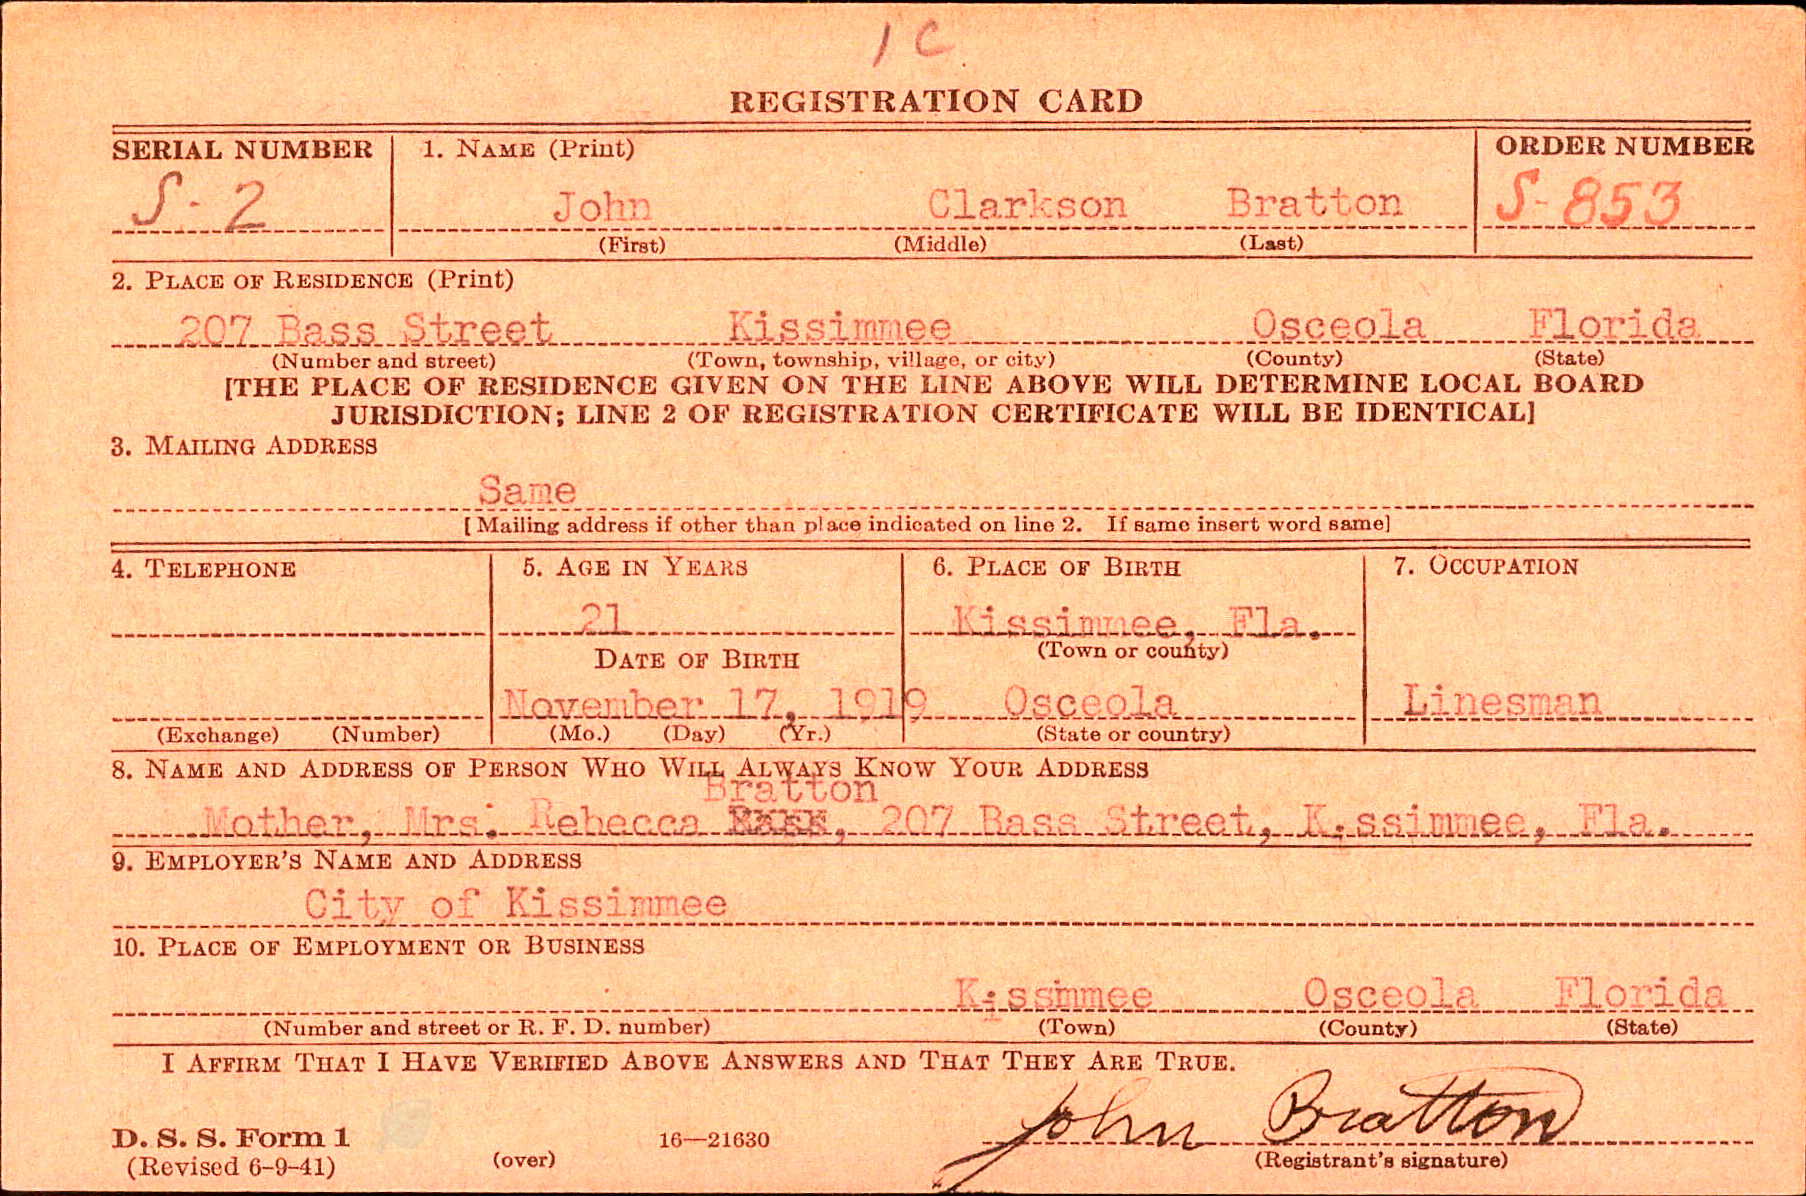 1 C
REGISTRATION CARD
SERIAL NUMBER 1. NAME (Print) ORDER NUMBER
S-2 John Clarkson Bratton S-853
(First) (Middle) (Last)
2. PLACE OF RESIDENCE (Print)
207 Bass Street Kissimmee Osceola Florida
(Number and street) (Town, township, village, or city) (County) (State)
[THE PLACE OF RESIDENCE GIVEN ON THE LINE ABOVE WILL DETERMINE LOCAL BOARD
JURISDICTION; LINE 2 OF REGISTRATION CERTIFICATE WILL BE IDENTICAL]
3. MAILING ADDRESS
Same
[Mailing address if other than place indicated on line 2. If same insert word same]
4. TELEPHONE 5. AGE IN YEARS 6. PLACE OF BIRTH 7. OCCUPATION
21 Kissimmee, Fla.
DATE OF BIRTH (Town or county)
November 17, 1919 Osceola Linesman
(Exchange) (Number) (Mo.) (Day) (Yr.) (State or country)
8. NAME AND ADDRESS OF PERSON WHO WILL ALWAYS KNOW YOUR ADDRESS
Bratton
Mother, Mrs. Rebecca , 207 Bass Street, Kissimmee, Fla.
9. EMPLOYER'S NAME AND ADDRESS
City of Kissimmee
10. PLACE OF EMPLOYMENT OR BUSINESS
Kissmmee Osceola Florida
(Number and street or R. F. D. number) (Town) (County) (State)
I AFFIRM THAT I HAVE VERIFIED ABOVE ANSWERS AND THAT THEY ARE TRUE.
John Bratton
D. S. S. Form 1 16—21630
(Revised 6-9-41) (over) (Registrant's signature)